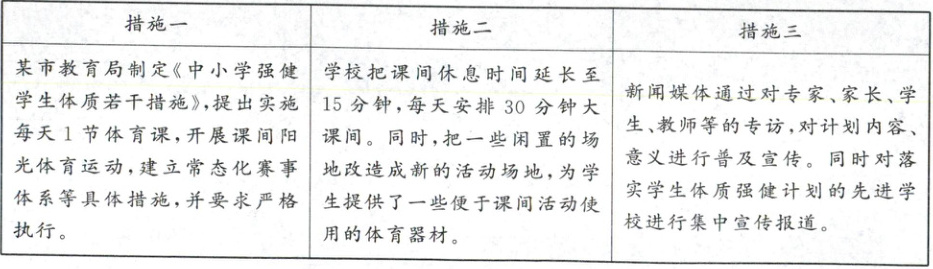 措施一
措施二
措施三
某市教育局制定《中小学强健
学生体质若干措施》，提出实施
每天1节体育课，开展课间阳
光体育运动，建立常态化赛事
体系等具体措施，并要求严格
执行。
学校把课间休息时间延长至
15分钟，每天安排30分钟大
课间。同时，把一些闲置的场
地改造成新的活动场地，为学
生提供了一些便于课间活动使
用的体育器材。
新闻媒体通过对专家、家长、学
生、教师等的专访，对计划内容、
意义进行普及宣传。同时对落
实学生体质强健计划的先进学
校进行集中宣传报道。